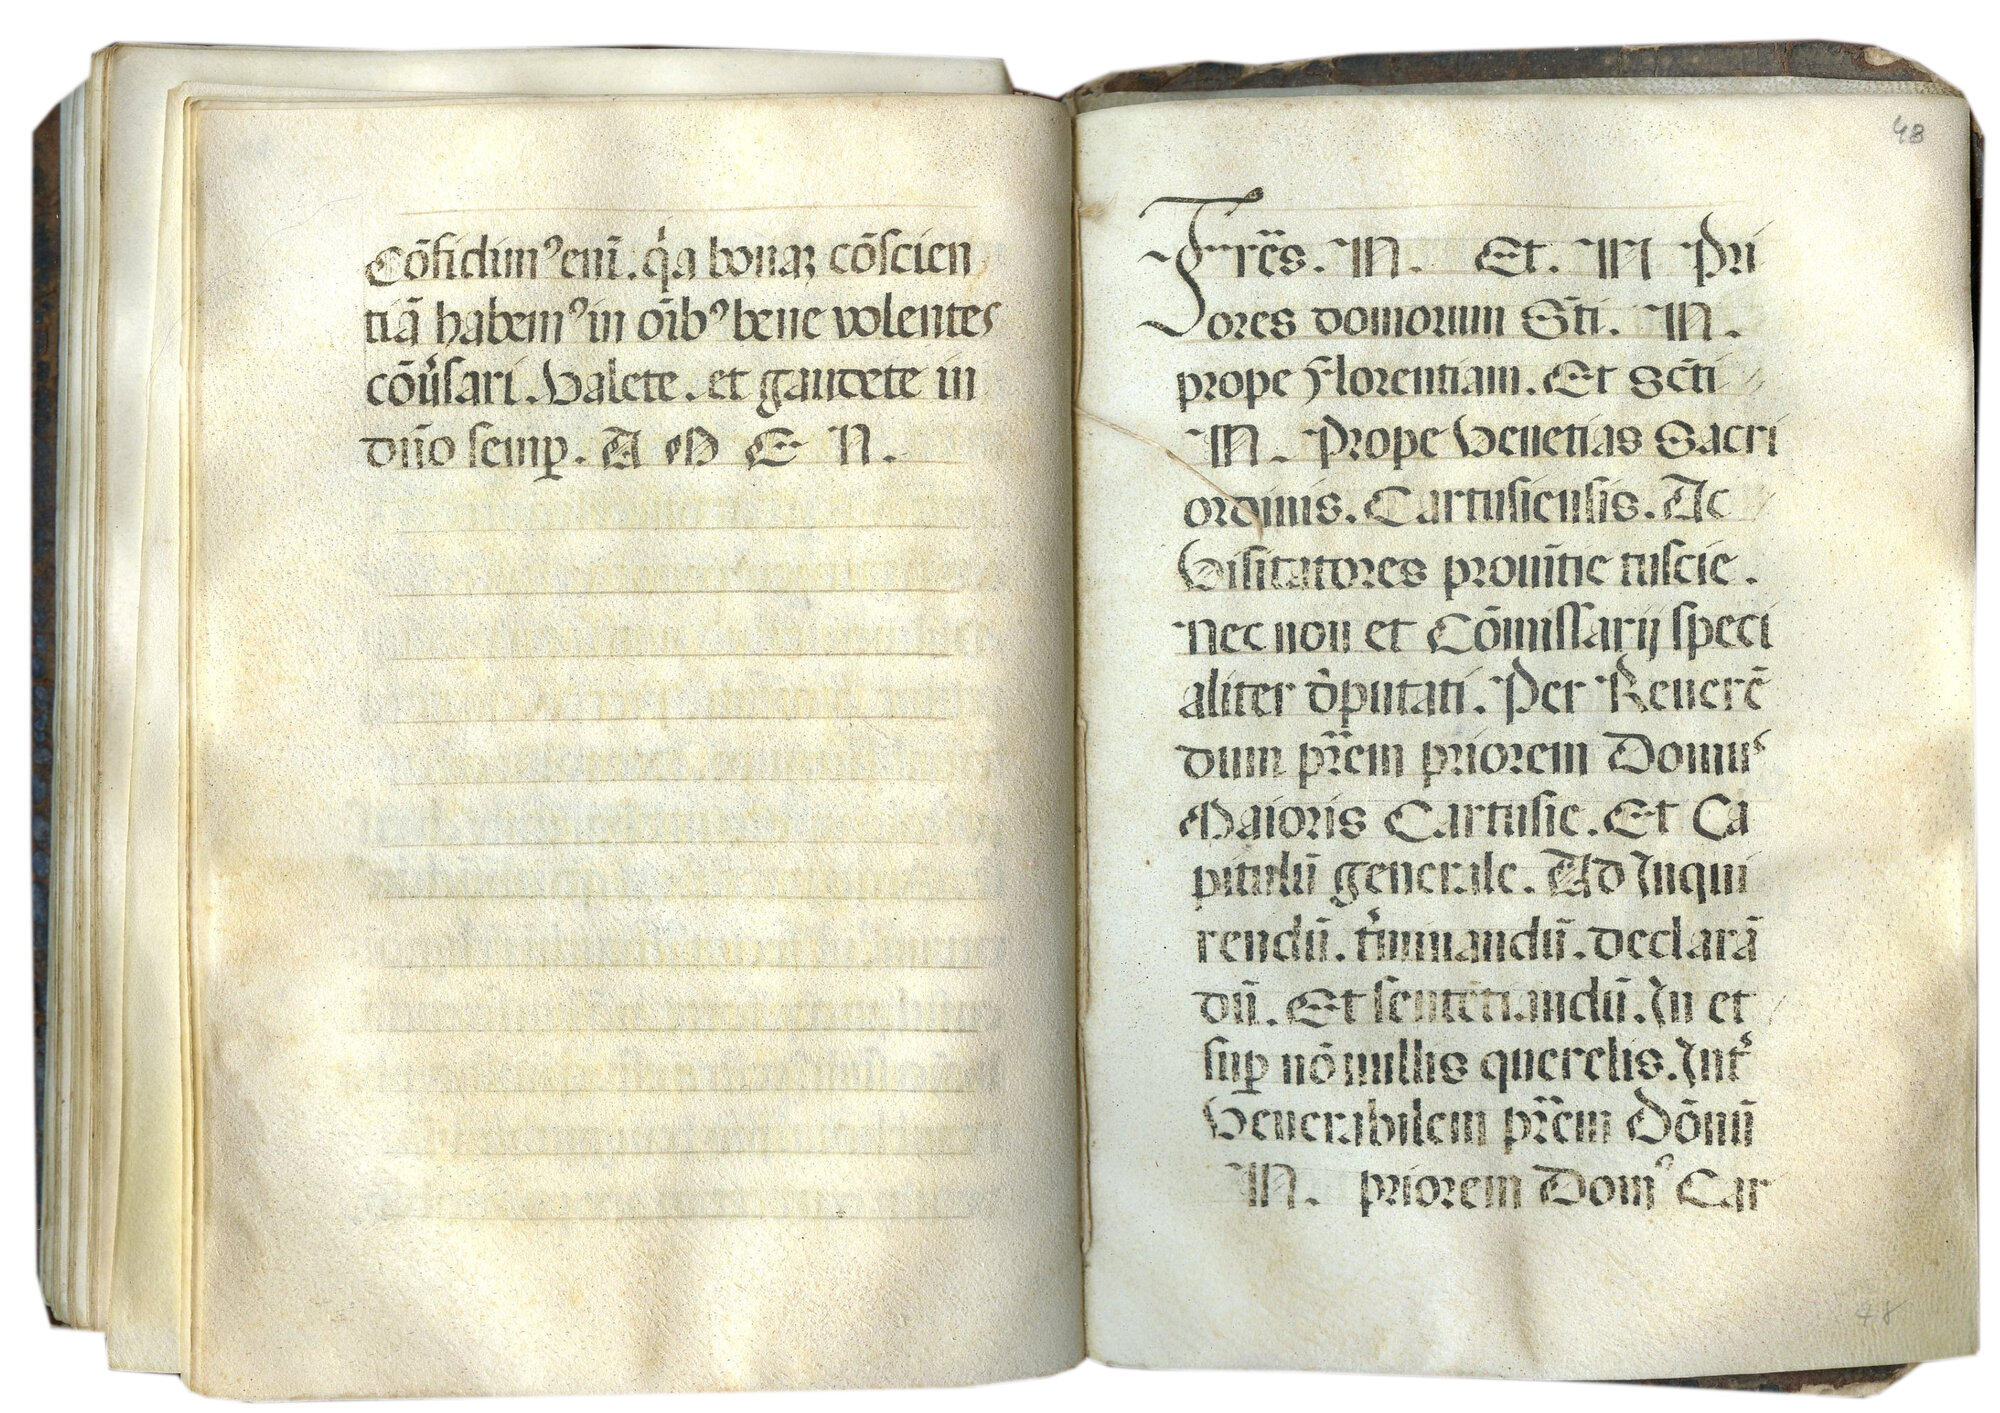 Cōfidimꝰ enī. qͥa bonaꝝ cōſcien
tiā habemꝰ in oībꝰ bene volentes
cōuͥſari. Valete. et gaudete in
dño ſemꝑ. A M E N.
48
Fr̄es. N. Et. N Pri
ores domorum S̄ti. N.
prope Florentiam. Et Sc̄ti
N. Prope Venetias Sacri
ordinis. Cartuſienſis. Ac
Viſitatores prouītie tuſcie.
Nec non et Cōmiſſarij ſpeci
aliter d̄putati. Per Reuerē
dum pr̄em priorem Domus
Maioris Cartuſie. Et Ca
pitulū generale. Ad Inqui
rendū. tͥminandū. declarā
dū. Et ſentētiandū. In et
ſuꝑ nōnullis querelis. Intͥ
Venerabilem pr̄em Dōnū
N. priorem Domꝰ Car
48